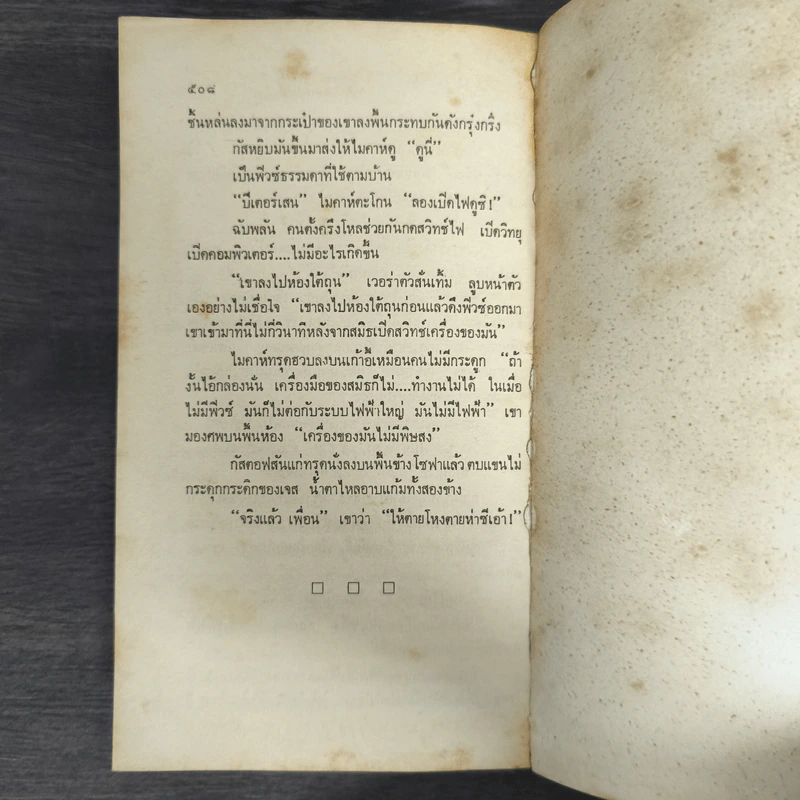 ๕๐๘
ชิ้นหล่นลงมาจากกระเป๋าของเขาลงพื้นกระทบกันดังกรุ๋งกริ๋ง
กัสหยิบมันขึ้นมาส่งให้ไมคาห์ดู “ดูนี่”
เป็นฟิวซ์ธรรมดาที่ใช้ตามบ้าน
“บีเตอร์เสน” ไมคาห์ตะโกน “ลองเปิดไฟดูซิ!”
ฉับพลัน คนตั้งครึ่งโหลช่วยกันกดสวิทช์ไฟ เปิดวิทยุ
เปิดคอมพิวเตอร์....ไม่มีอะไรเกิดขึ้น
“เขาลงไปห้องใต้ถุน” เวอร่าตัวสั่นเทิ้ม ลูบหน้าตัว
เองอย่างไม่เชื่อใจ “เขาลงไปห้องใต้ถุนก่อนแล้วดึงฟิวซ์ออกมา
เขาเข้ามาที่นี่ไม่กี่วินาทีหลังจากสมิธเปิดสวิทช์เครื่องของมัน”
ไมคาห์ทรุดฮวบลงบนเก้าอี้เหมือนคนไม่มีกระดูก “ถ้า
งั้นไอ้กล่องนั่น เครื่องมือของสมิธก็ไม่....ทำงานไม่ได้ ในเมื่อ
ไม่มีฟิวซ์ มันก็ไม่ต่อกับระบบไฟฟ้าใหญ่ มันไม่มีไฟฟ้า” เขา
มองศพบนพื้นห้อง “เครื่องของมันไม่มีพิษสง”
กัสตอฟสันแก่ทรุดนั่งลงบนพื้นข้างโซฟาแล้ว ตบแขนไม่
กระดุกกระดิกของเจส น้ำตาไหลอาบแก้มทั้งสองข้าง
“จริงแล้ว เพื่อน” เขาว่า “ให้ตายโหงตายห่าซีเอ้า!”